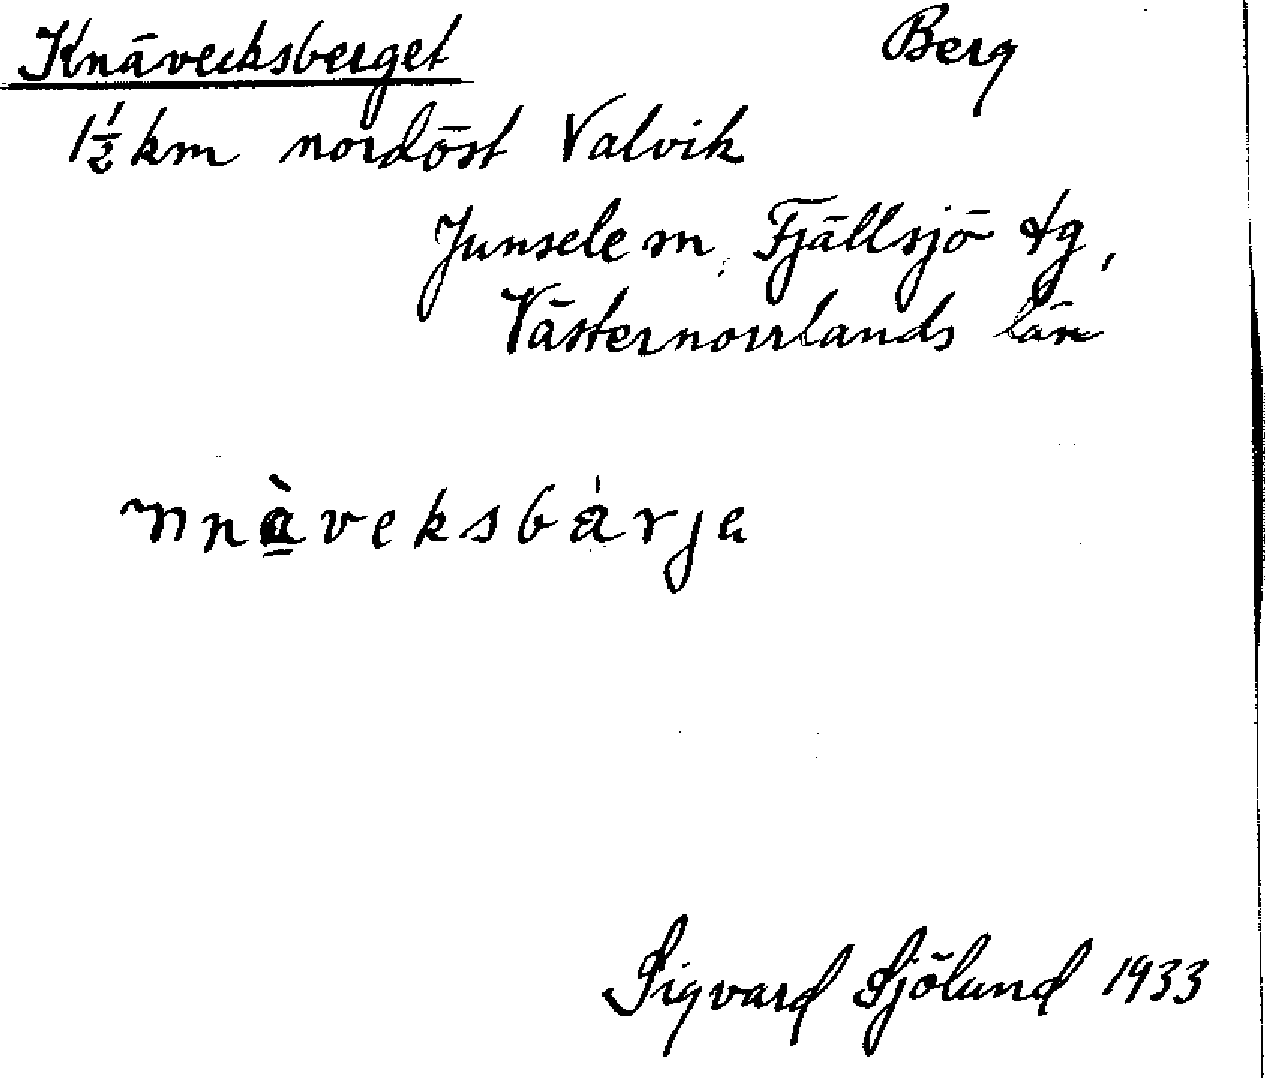 Knävecksberget Berg
1½ km nordöst Valvik
Junsele sn, Fjällsjö tg,
Västernorrlands län
nnàveksbárja
Sigvard Sjölund 1933